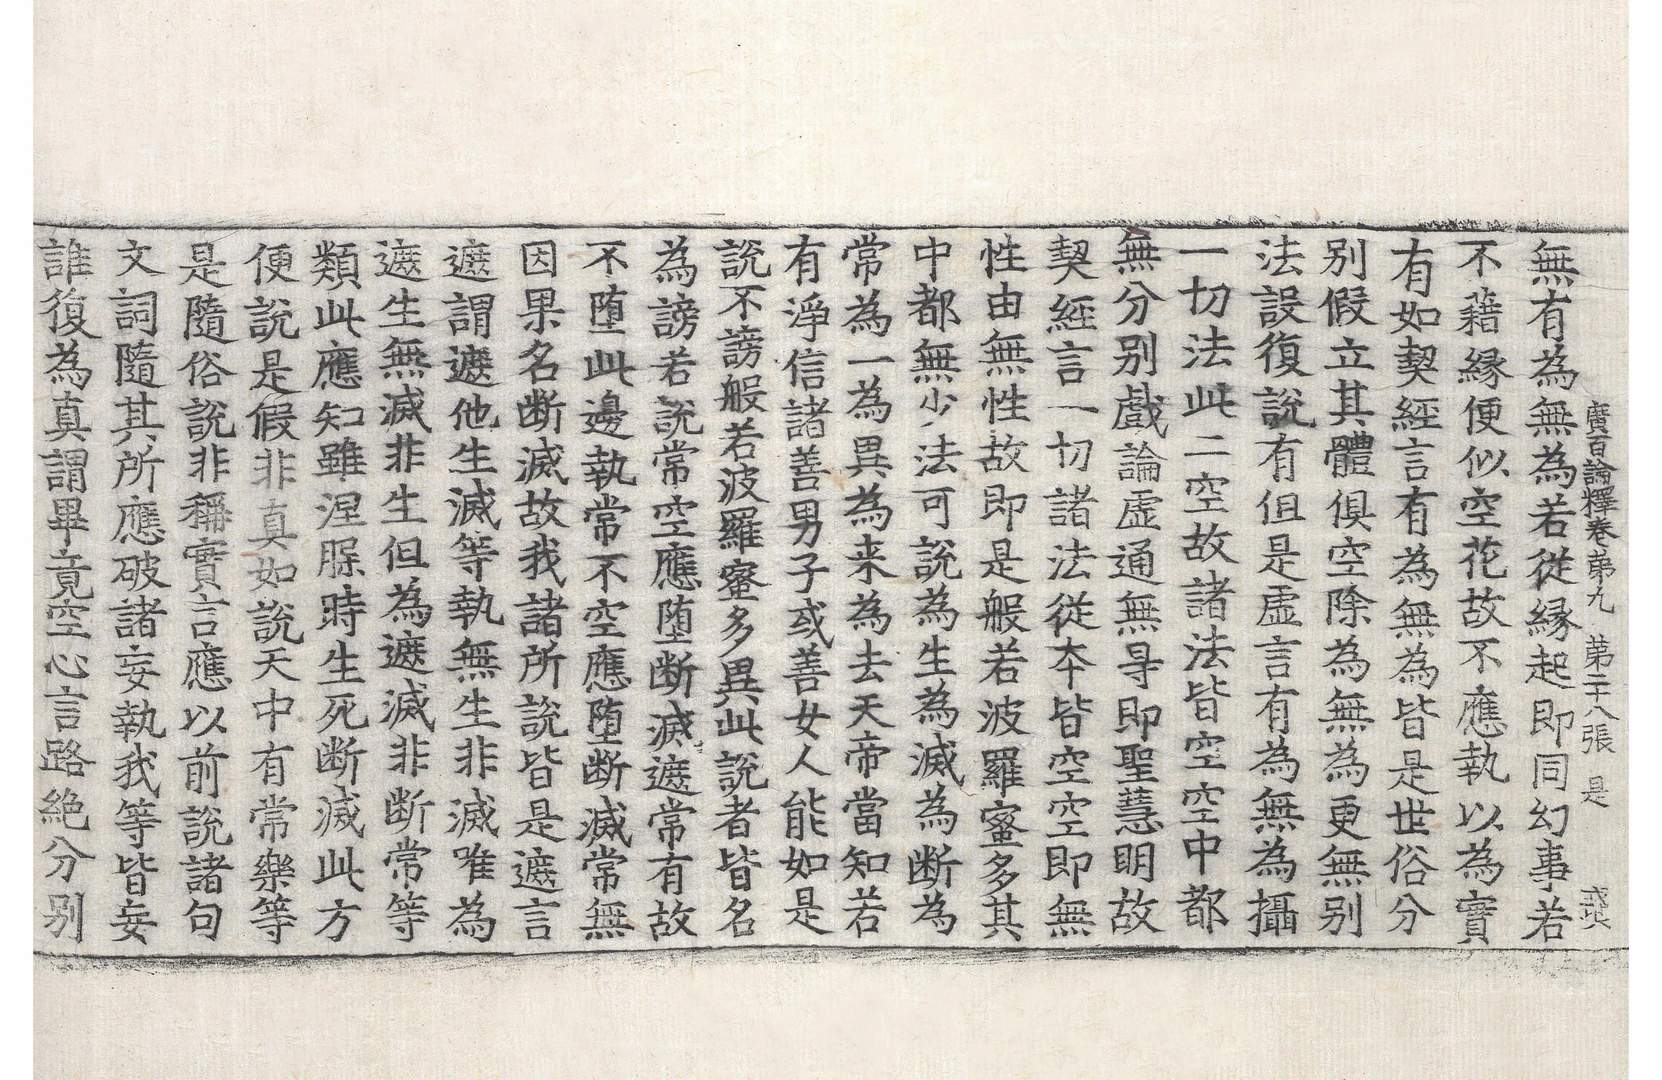 廣百論釋卷第九 第二十八張 是
無有為無為若從縁起即同幻事若
不藉縁便似空花故不應執以為實
有如契經言有為無為皆是世俗分
别假立其體俱空除為無為更無别
法設復説有但是虚言有為無為攝
一切法此二空故諸法皆空空中都
無分别戲論虚通無㝵即聖慧明故
契經言一切諸法從夲皆空空即無
性由無性故即是般若波羅蜜多其
中都無少法可説為生為滅為断為
常為一為異為来為去天帝當知若
有淨信諸善男子或善女人能如是
説不謗般若波羅蜜多異此説者皆名
為謗若説常空應堕断滅遮常有故
不堕此邊執常不空應堕断滅常無
因果名断滅故我諸所説皆是遮言
遮謂遮他生滅等執無生非滅唯為
遮生無滅非生但為遮滅非断常等
類此應知雖涅脲時生死断滅此方
便説是假非真如説天中有常樂等
是隨俗説非稱實言應以前説諸句
文詞隨其所應破諸妄執我等皆妄
誰復為真謂畢竟空心言路絶分别